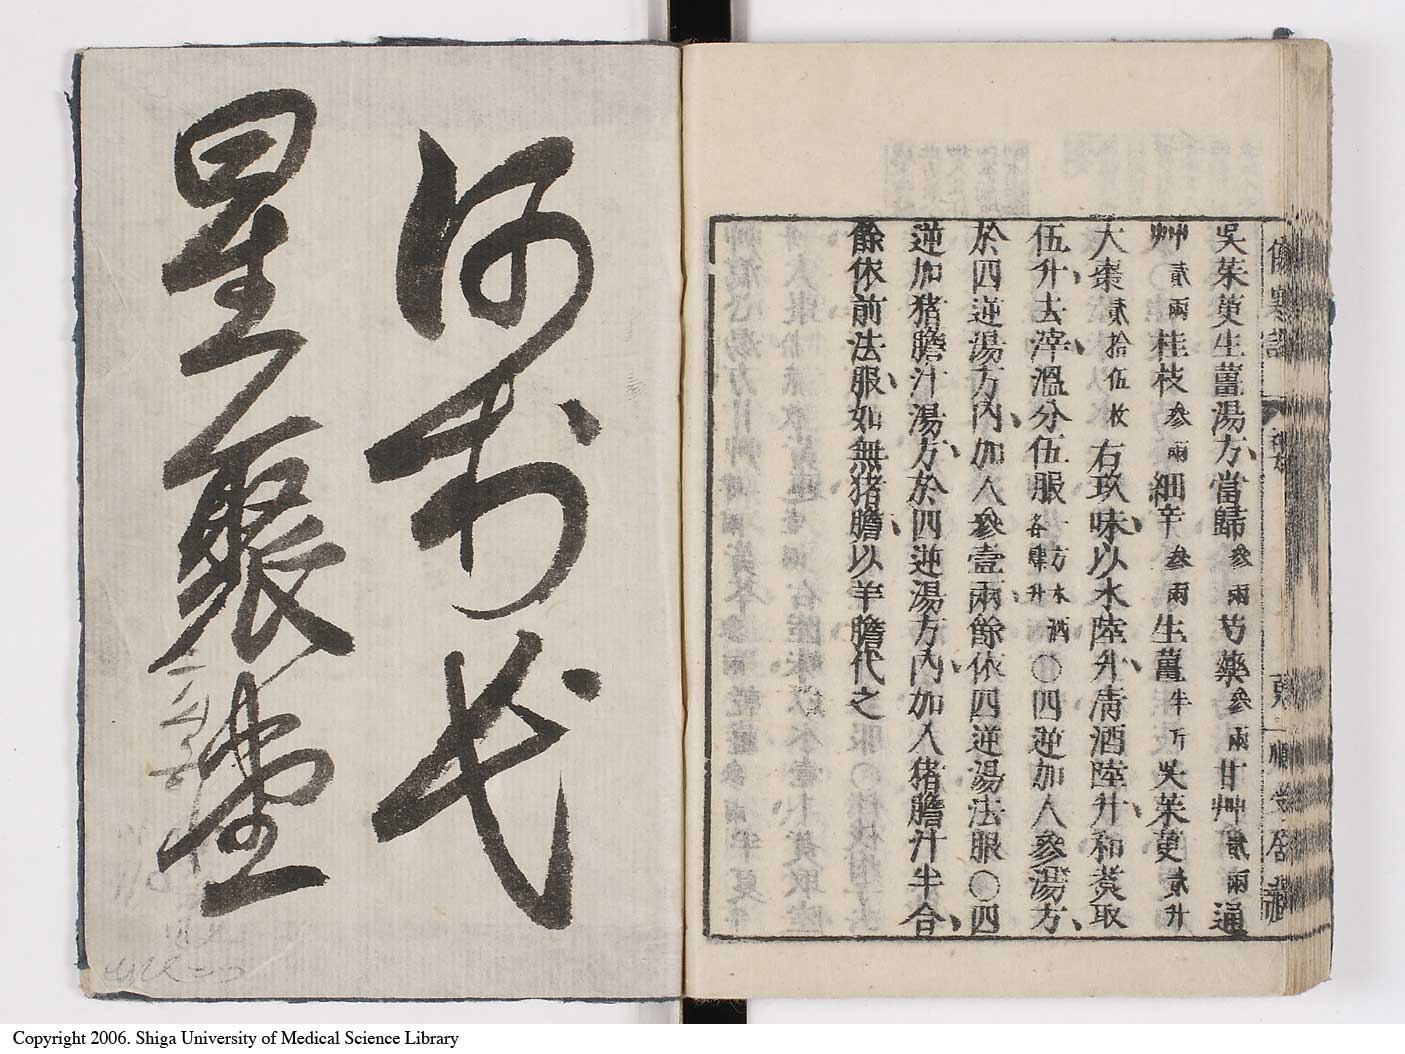 吳茱萸生薑湯方當歸參兩芍藥參兩甘艸貳兩通
艸貳兩桂枝參兩細辛參兩生薑半斤吳茱萸貳升
大棗貳拾伍枚右玖味以水陸升淸酒陸升和煑取
伍升去滓溫分伍服一方水酒各肆升〇四逆加人參湯方
於四逆湯方內加人參壹兩餘依四逆湯法服〇四
逆加猪膽汁湯方於四逆湯方內加入猪膽汁半合
餘依前法服如無猪膽以羊膽代之
星聚堂
Copyright 2006. Shiga University of Medical Science Library